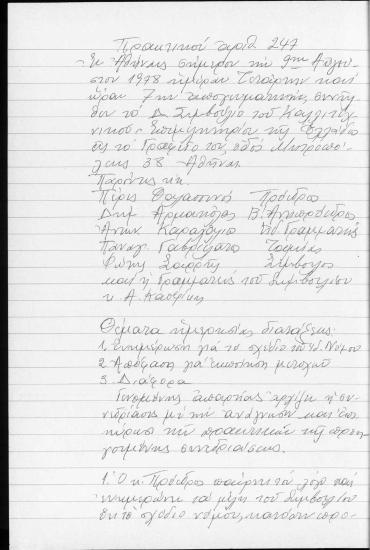 Πρακτικού αριθ. 247
Εν Αθήναις σήμερον την 9ην Αυγού-
στου 1978 ημέραν Τετάρτην και
ώραν 7ην απογευματινήν, συνήλ-
θον το Δ. Συμβούλιο του Καλλιτεχ-
νικού Επιμελητηρίου της Ελλάδος
εις τα Γραφεία του, οδός Μητροπό-
λεως 38 Αθήναι.
Παρόντες κ.κ.
Πάρις Πρόεδρος
Δημ. Αρμακόλας Β. Αντιπρόεδρος
Αντών Καραχάλιο Γραμματεύς
Παναγ. Γαβρελάτο Ταμίας
Φώτης Σύμβουλος
και η Γραμματεύς του Συμβουλίου
κ. Α.
Θέματα ημερησίας διατάξεως:
1. Ενημέρωση για το σχέδιο του Ν. Νόμου
2. Απόφαση για εκποίηση μετοχών
3. Διάφορα
Γενομένης απαρτίας αρχίζει η συ-
νεδρίασις με την ανάγνωση και επι-
κύρωση των πρακτικών της προη-
γουμένης συνεδριάσεως.
1. Ο κ. Πρόεδρος παίρνει τον λόγο και
ενημερώνει τα μέλη του Συμβουλίου
ότι το σχέδιο νόμου, κατόπιν προ-